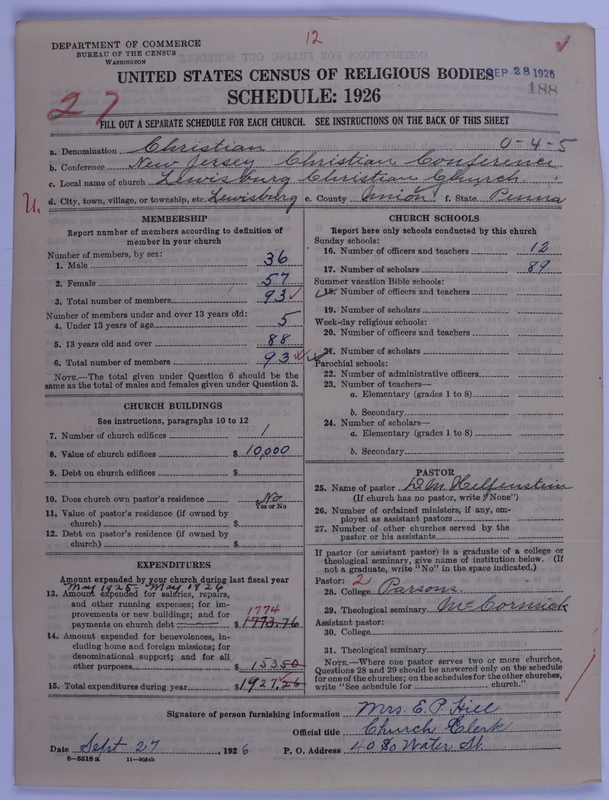 DEPARTMENT OF COMMERCE
BUREAU OF THE CENSUS
WASHINGTON
12
UNITED STATES CENSUS OF RELIGIOUS BODIES
SEP 28 1926
188
SCHEDULE: 1926
27
FILL OUT A SEPARATE SCHEDULE FOR EACH CHURCH. SEE INSTRUCTIONS ON THE BACK OF THIS SHEET
a. Denomination Christian 0-4-5
b. Conference New Jersey Christian Conference
c. Local name of church Lewisburg Christian Church
U. d. City, town, village, or township, etc. Lewisburg e. County Union f. State Penna
MEMBERSHIP
Report number of members according to definition of
member in your church
Number of members, by sex:
1. Male 36
2. Female 57
3. Total number of members 93
Number of members under and over 13 years old:
4. Under 13 years of age 5
5. 13 years old and over 88
6. Total number of members 93
NOTE.—The total given under Question 6 should be the
same as the total of males and females given under Question 3.
CHURCH BUILDINGS
See instructions, paragraphs 10 to 12
7. Number of church edifices 1
8. Value of church edifices $ 10,000
9. Debt on church edifices $
10. Does church own pastor's residence No
Yes or No
11. Value of pastor's residence (if owned by
church) $
12. Debt on pastor's residence (if owned by
church) $
EXPENDITURES
Amount expended by your church during last fiscal year
May 1925 - May 1926
13. Amount expended for salaries, repairs,
and other running expenses; for im-
provements or new buildings; and for 1774
payments on church debt $ 1773.76
14. Amount expended for benevolences, in-
cluding home and foreign missions; for
denominational support; and for all
other purposes $ 153.50
15. Total expenditures during year $ 1927.26
CHURCH SCHOOLS
Report here only schools conducted by this church
Sunday schools:
16. Number of officers and teachers 12
17. Number of scholars 89
Summer vacation Bible schools:
18. Number of officers and teachers
19. Number of scholars
Week-day religious schools:
20. Number of officers and teachers
21. Number of scholars
Parochial schools:
22. Number of administrative officers
23. Number of teachers—
a. Elementary (grades 1 to 8)
b. Secondary
24. Number of scholars—
a. Elementary (grades 1 to 8)
b. Secondary
PASTOR
25. Name of pastor D. M. Helfenstein
(If church has no pastor, write "None")
26. Number of ordained ministers, if any, em-
ployed as assistant pastors
27. Number of other churches served by the
pastor or his assistants
If pastor (or assistant pastor) is a graduate of a college or
theological seminary, give name of institution below. (If
not a graduate, write "No" in the space indicated.)
Pastor: 2
28. College Parsons
29. Theological seminary McCormick
Assistant pastor:
30. College
31. Theological seminary
NOTE.—Where one pastor serves two or more churches,
Questions 28 and 29 should be answered only on the schedule
for one of the churches; on the schedules for the other churches,
write "See schedule for church."
Signature of person furnishing information Mrs. E. P. Hill
Official title Church Clerk
Date Sept 27, 1926 P. O. Address 40 So Water St.
8—5518 a 11—9054b